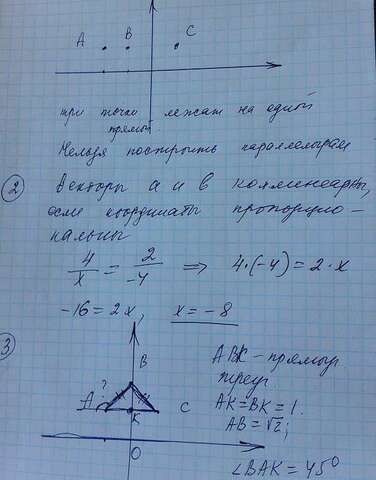 A B C
три точки лежат на одной
прямой
Нельзя построить параллелограм
②
Векторы a и b коллинеарны,
если координаты пропорцио-
нальны
4/x = 2/-4 ⇒ 4·(-4) = 2·x
-16 = 2x, x = -8
③
A ? B C K O
ABK - прямоуг
треуг.
AK = BK = 1.
AB = √2;
∠BAK = 45°